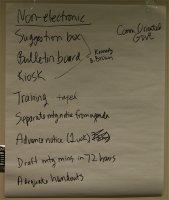 Non-electronic
Suggestion box
Bulletin board
Kiosk
Kennedy
& Brown
Comm. Oriented
Govt
Training taped
Separate mtg notice from agenda
Advance notice (1 wk)
Draft mtg mins in 72 hours
Adequate handouts